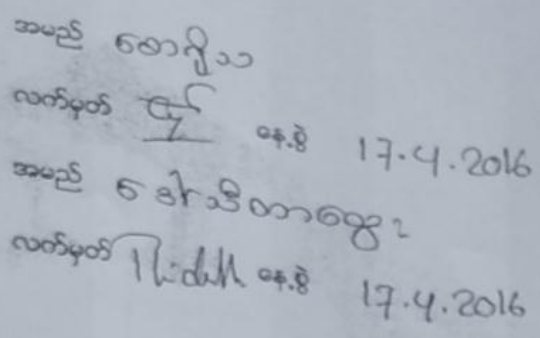 အမည် စောရှိသ
လက်မှတ် နေ့စွဲ 17.4.2016
အမည် ဒေါ်သီတာထွေး
လက်မှတ် နေ့စွဲ 17.4.2016